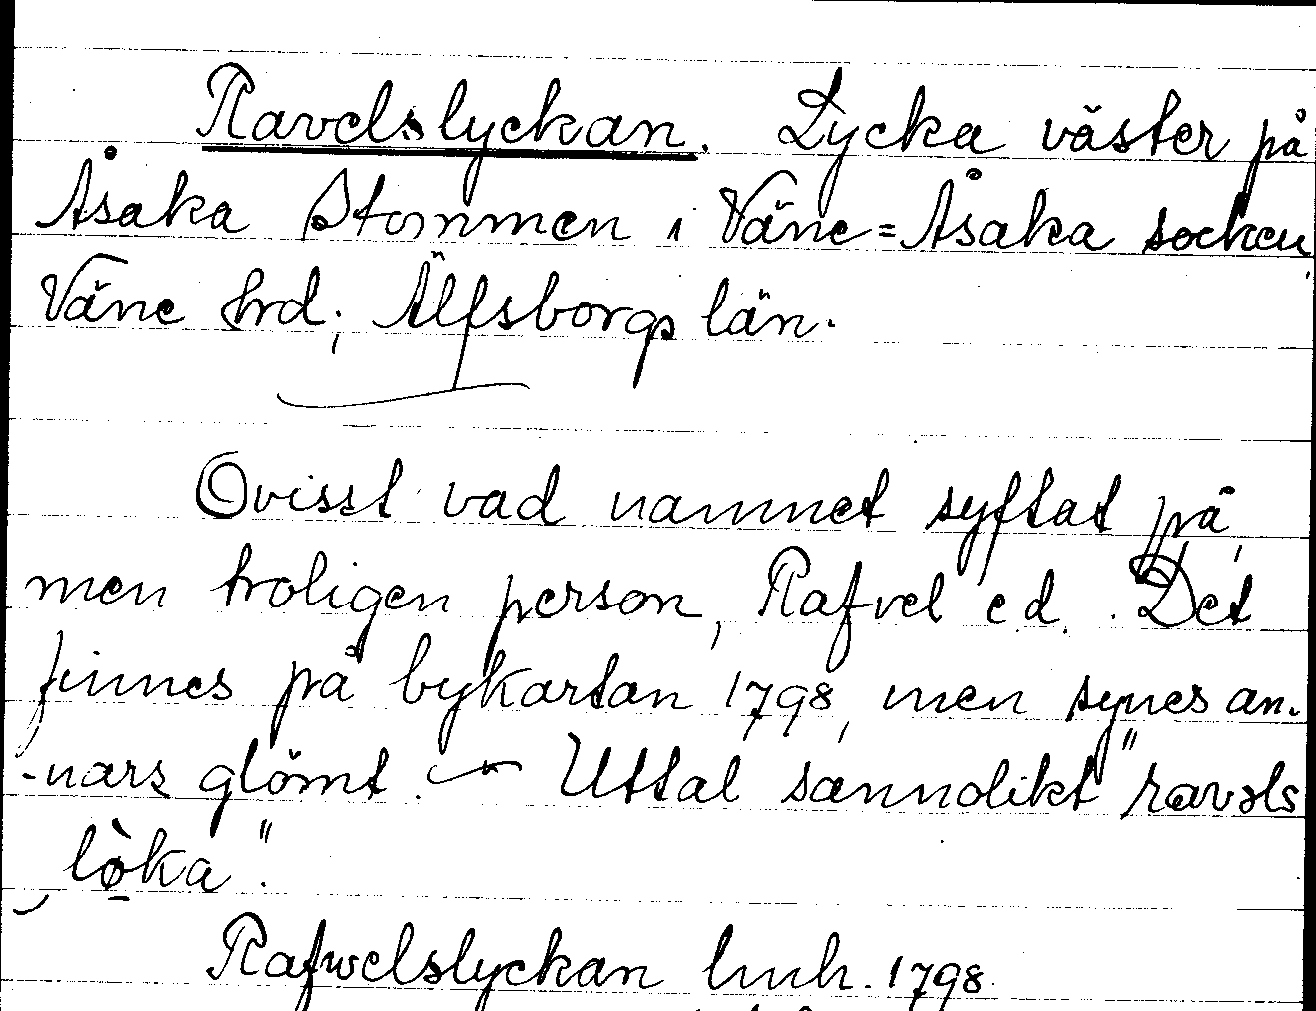 Ravelslyckan. Lycka väster på
Åsaka Stommen i Väne=Åsaka socken,
Väne hrd; Älfsborgs län.
Ovisst vad namnet syftat på,
men troligen person, Rafvel e d. Det
finnes på bykartan 1798, men synes an-
-nars glömt. — Uttal sannolikt "ravəls
lòka".
Rafwelslyckan lmh. 1798